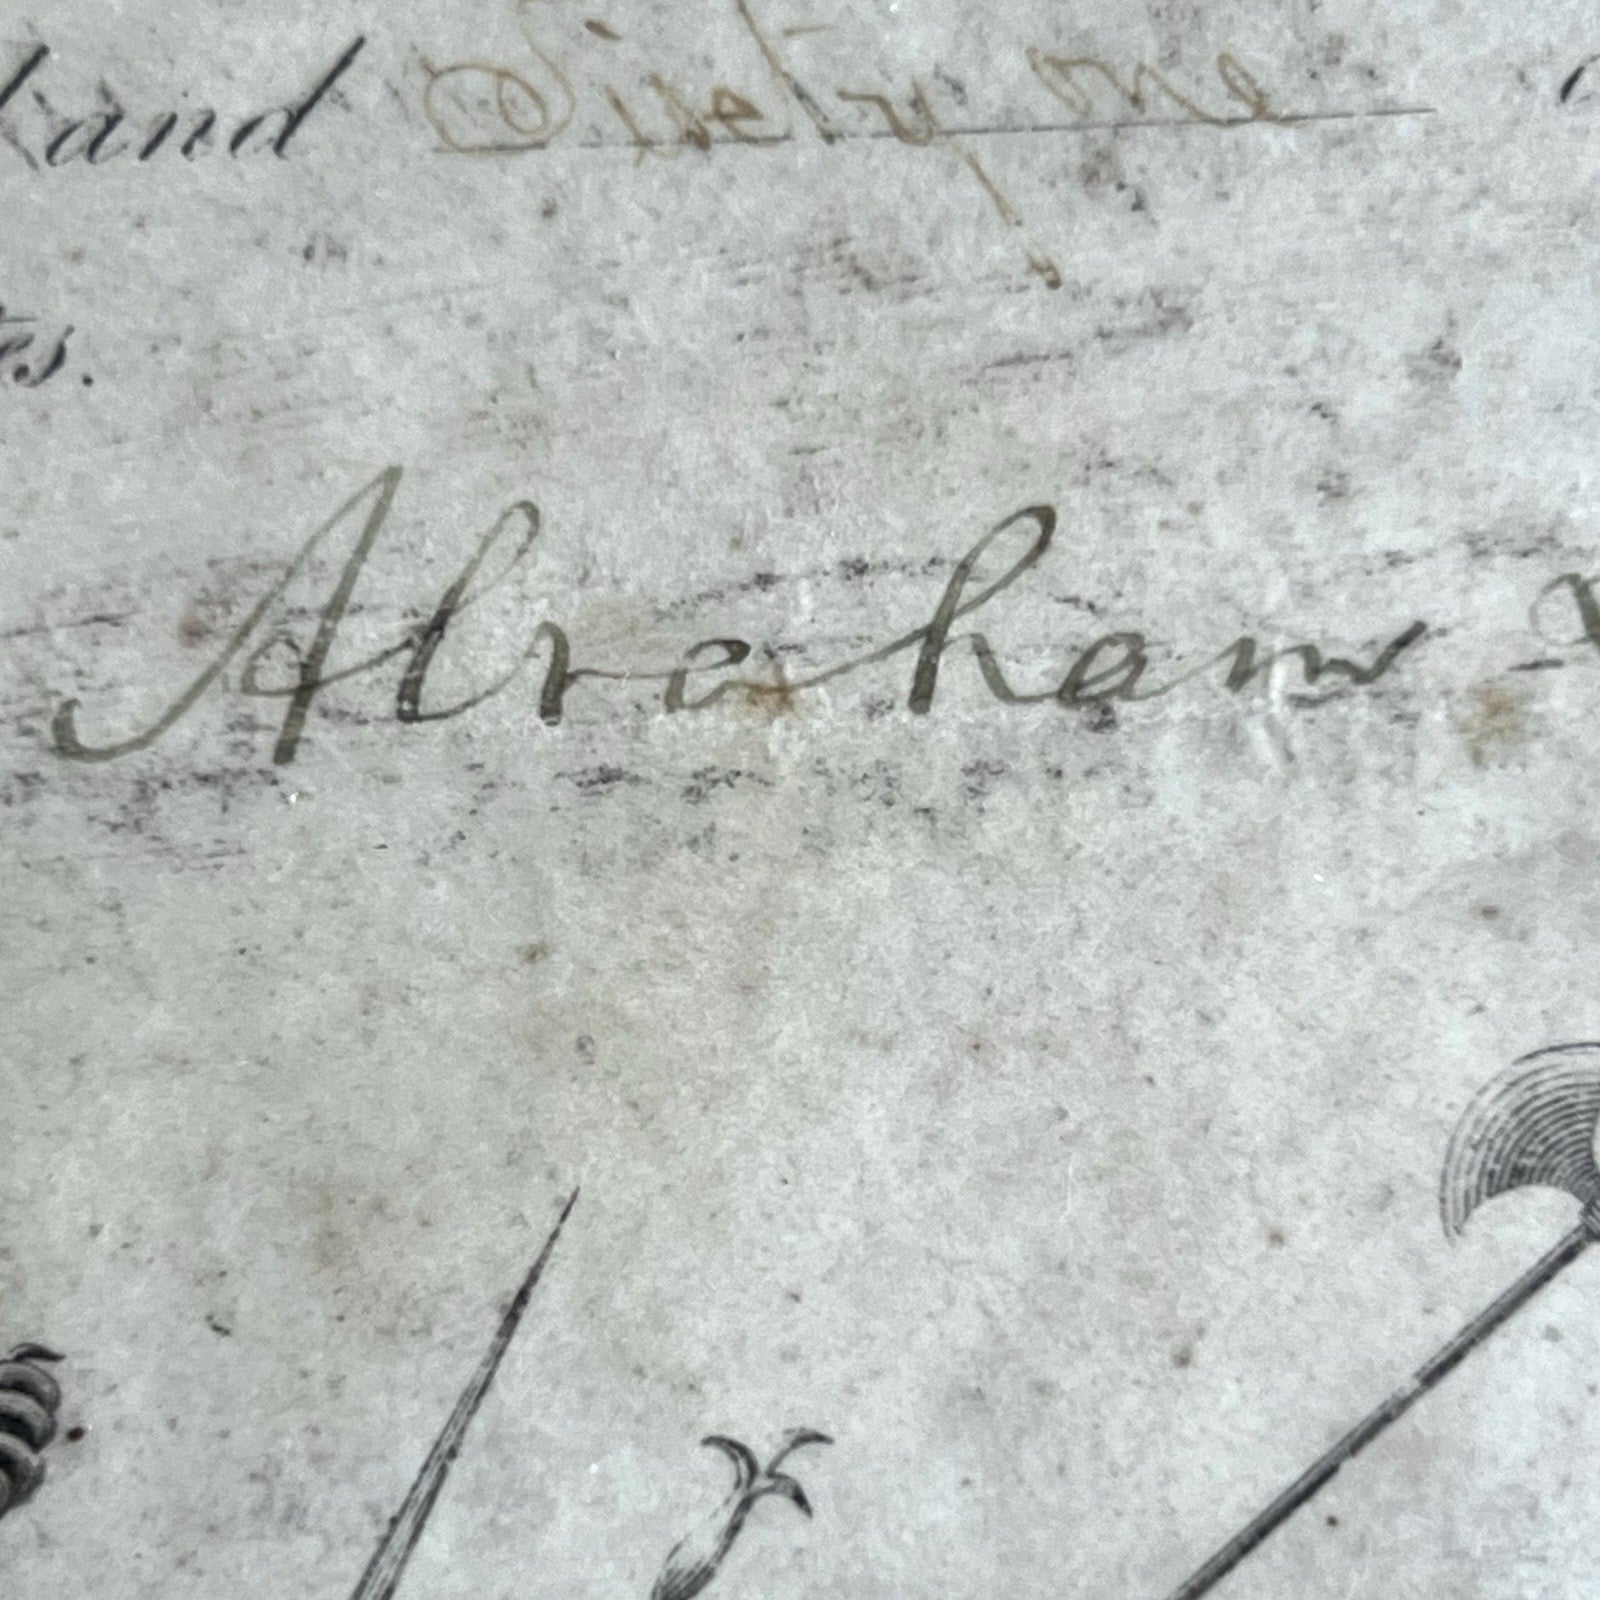 and Sixty one
es.
Abraham